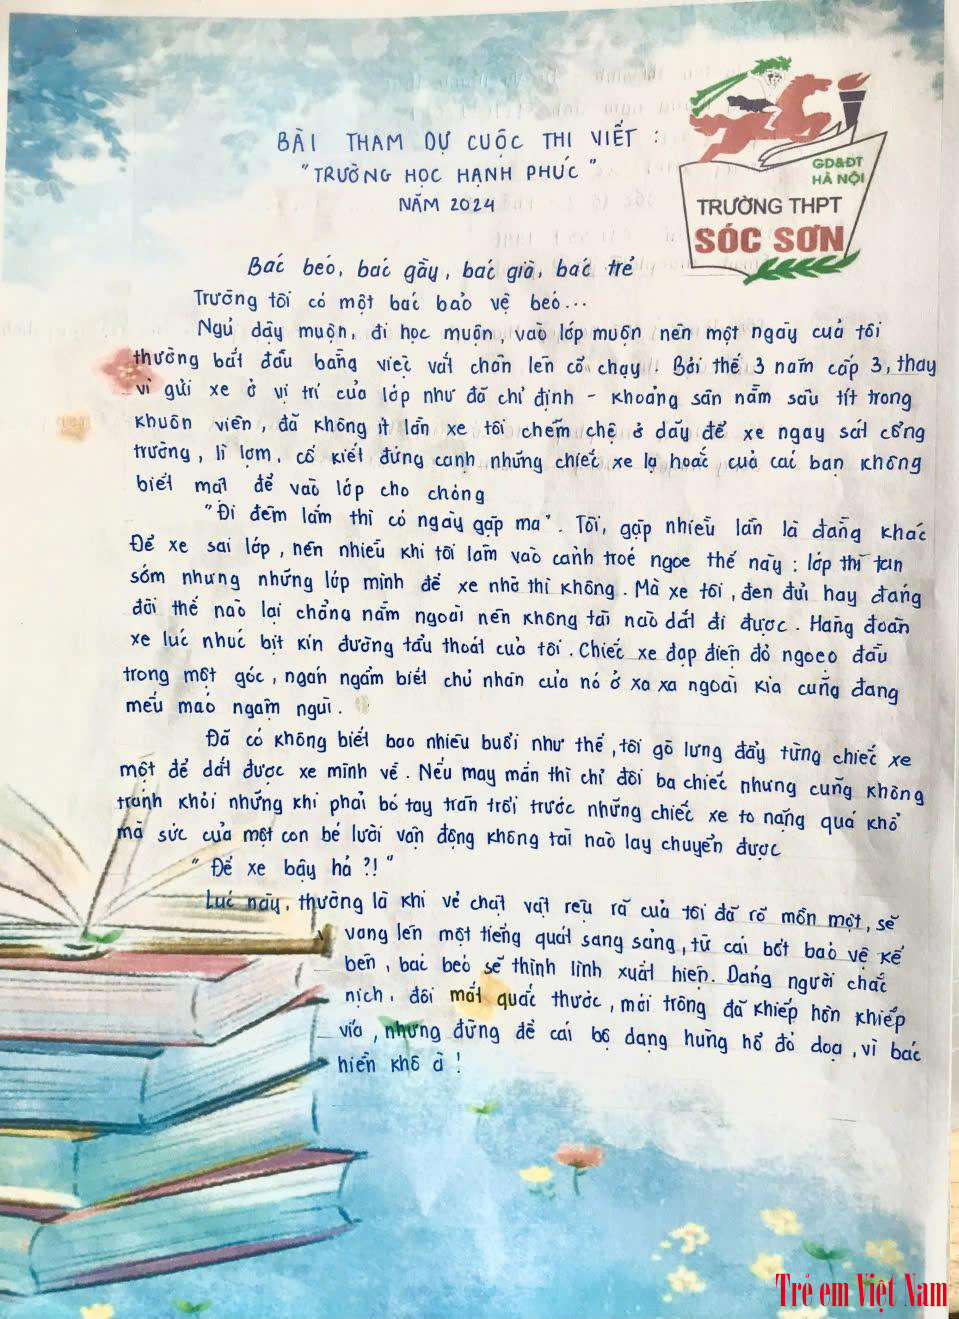 BÀI THAM DỰ CUỘC THI VIẾT :
"TRƯỜNG HỌC HẠNH PHÚC"
NĂM 2024
GD&ĐT
HÀ NỘI
TRƯỜNG THPT
SÓC SƠN
Bác béo, bác gầy, bác già, bác trẻ
Trường tôi có một bác bảo vệ béo...
Ngủ dậy muộn, đi học muộn, vào lớp muộn nên một ngày của tôi
thường bắt đầu bằng việc vắt chân lên cổ chạy. Bởi thế 3 năm cấp 3, thay
vì gửi xe ở vị trí của lớp như đã chỉ định - khoảng sân nằm sâu tít trong
khuôn viên, đã không ít lần xe tôi chễm chệ ở dãy để xe ngay sát cổng
trường, lì lợm, cố kiết đứng cạnh những chiếc xe lạ hoắc của các bạn không
biết mặt để vào lớp cho chóng
"Đi đêm lắm thì có ngày gặp ma". Tôi, gặp nhiều lần là đằng khác
Để xe sai lớp, nên nhiều khi tôi lâm vào cảnh troé ngoe thế này : lớp thì tan
sớm nhưng những lớp mình để xe nhờ thì không. Mà xe tôi, đen đủi hay đáng
đời thế nào lại chẳng nằm ngoài nên không tài nào dắt đi được. Hàng đoàn
xe lúc nhúc bịt kín đường tẩu thoát của tôi. Chiếc xe đạp điện đỏ ngoẹo đầu
trong một góc, ngán ngẩm biết chủ nhân của nó ở xa xa ngoài kia cũng đang
mếu máo ngậm ngùi.
Đã có không biết bao nhiêu buổi như thế, tôi gò lưng đẩy từng chiếc xe
một để dắt được xe mình về. Nếu may mắn thì chỉ đôi ba chiếc nhưng cũng không
tránh khỏi những khi phải bó tay trân trối trước những chiếc xe to nặng quá khổ
mà sức của một con bé lười vận động không tài nào lay chuyển được
"Để xe bậy hả ?!"
Lúc này, thường là khi vẻ chật vật rệu rã của tôi đã rõ mồn một, sẽ
vang lên một tiếng quát sang sảng, từ cái bốt bảo vệ kế
bên, bác béo sẽ thình lình xuất hiện. Dáng người chắc
nịch, đôi mắt quắc thước, mới trông đã khiếp hồn khiếp
vía, nhưng đừng để cái bộ dạng hùng hổ đó doạ, vì bác
hiền khô à !
Trẻ em Việt Nam